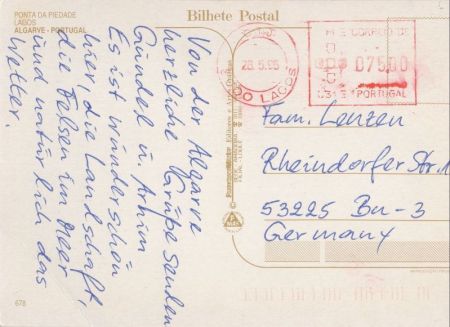 PONTA DA PIEDADE
LAGOS
ALGARVE - PORTUGAL
Bilhete Postal
Von der Algarve
herzliche Grüße senden
Gündel u. Achim
Es ist wunderschön
hier die Landschaft,
die Felsen im Meer
und natürlich das
Wetter.
LAGOS
075.00
PORTUGAL
Fam. Lenzen
Rheindorfer Str. 1
53225 Bn-3
Germany
678